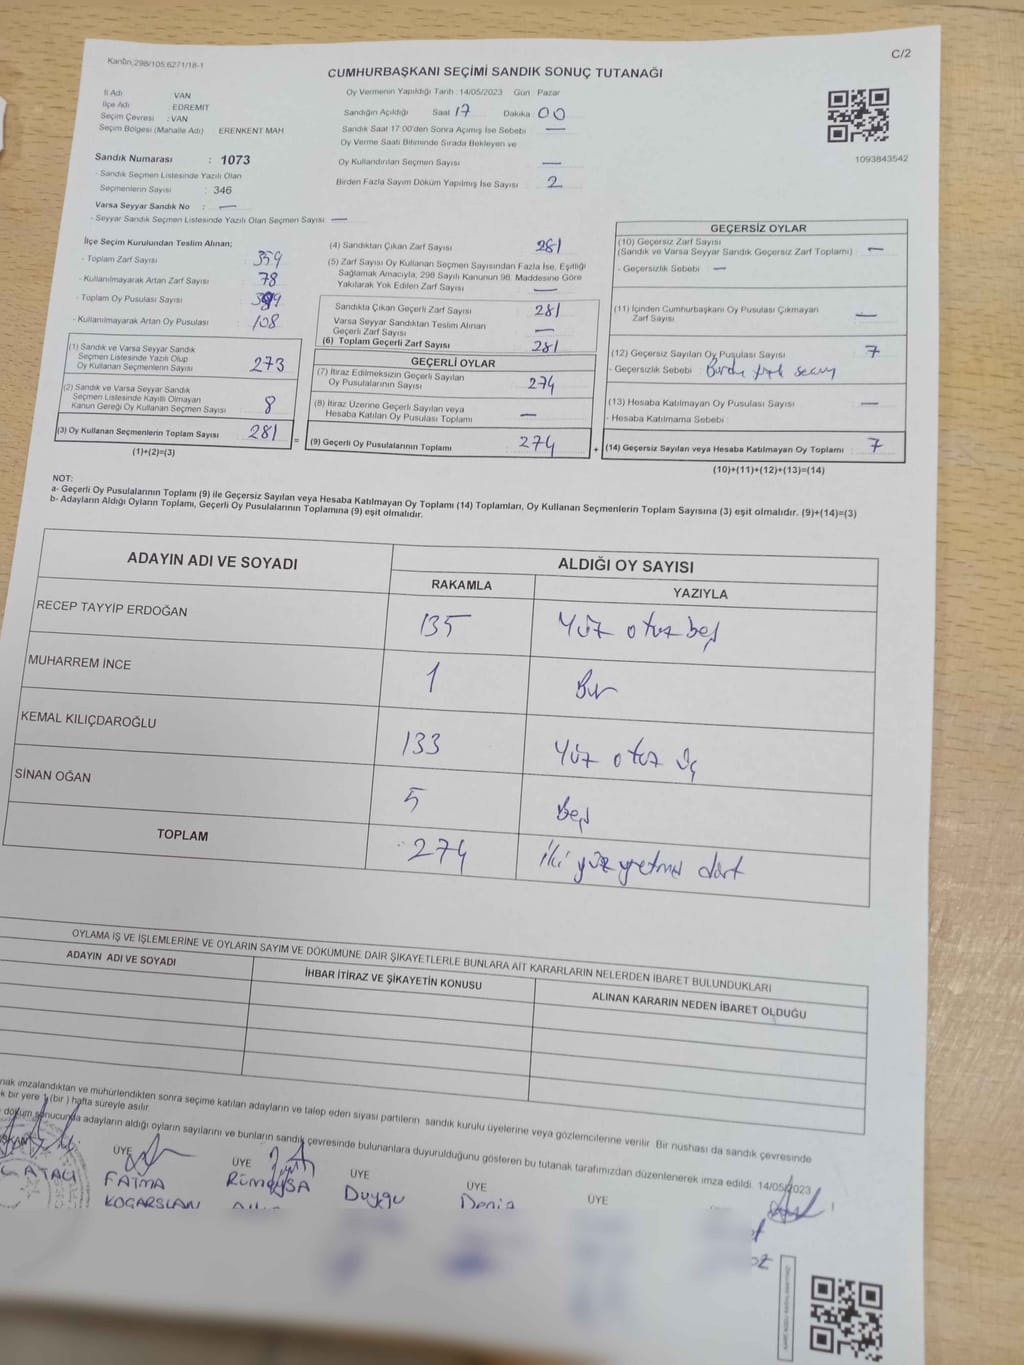 Kanun:298/105;6271/18-1
C/2
CUMHURBAŞKANI SEÇİMİ SANDIK SONUÇ TUTANAĞI
İl Adı VAN
İlçe Adı : EDREMIT
Seçim Çevresi : VAN
Seçim Bölgesi (Mahalle Adı) ERENKENT MAH
Oy Vermenin Yapıldığı Tarih : 14/05/2023 Gün : Pazar
Sandığın Açıldığı Saat 17 Dakika 00
Sandık Saat 17:00'den Sonra Açımış İse Sebebi —
Oy Verme Saati Bitiminde Sırada Bekleyen ve
Oy Kullandırılan Seçmen Sayısı —
Birden Fazla Sayım Döküm Yapılmış İse Sayısı 2
1093843542
Sandık Numarası : 1073
- Sandık Seçmen Listesinde Yazılı Olan
Seçmenlerin Sayısı : 346
Varsa Seyyar Sandık No : —
- Seyyar Sandık Seçmen Listesinde Yazılı Olan Seçmen Sayısı : —
İlçe Seçim Kurulundan Teslim Alınan;
- Toplam Zarf Sayısı 359
- Kullanılmayarak Artan Zarf Sayısı 78
- Toplam Oy Pusulası Sayısı
- Kullanılmayarak Artan Oy Pusulası 108
(1) Sandık ve Varsa Seyyar Sandık
Seçmen Listesinde Yazılı Olup
Oy Kullanan Seçmenlerin Sayısı 273
(2) Sandık ve Varsa Seyyar Sandık
Seçmen Listesinde Kayıtlı Olmayan
Kanun Gereği Oy Kullanan Seçmen Sayısı 8
(3) Oy Kullanan Seçmenlerin Toplam Sayısı 281 =
(1)+(2)=(3)
(4) Sandıktan Çıkan Zarf Sayısı 281
(5) Zarf Sayısı Oy Kullanan Seçmen Sayısından Fazla İse, Eşitliği
Sağlamak Amacıyla; 298 Sayılı Kanunun 98. Maddesine Göre
Yakılarak Yok Edilen Zarf Sayısı —
Sandıkta Çıkan Geçerli Zarf Sayısı 281
Varsa Seyyar Sandıktan Teslim Alınan
Geçerli Zarf Sayısı —
(6) Toplam Geçerli Zarf Sayısı 281
GEÇERLİ OYLAR
(7) İtiraz Edilmeksizin Geçerli Sayılan
Oy Pusulalarının Sayısı 274
(8) İtiraz Üzerine Geçerli Sayılan veya
Hesaba Katılan Oy Pusulası Toplamı —
(9) Geçerli Oy Pusulalarının Toplamı 274 +
GEÇERSİZ OYLAR
(10) Geçersiz Zarf Sayısı
(Sandık ve Varsa Seyyar Sandık Geçersiz Zarf Toplamı) : —
- Geçersizlik Sebebi : —
(11) İçinden Cumhurbaşkanı Oy Pusulası Çıkmayan
Zarf Sayısı —
(12) Geçersiz Sayılan Oy Pusulası Sayısı 7
- Geçersizlik Sebebi :
(13) Hesaba Katılmayan Oy Pusulası Sayısı —
- Hesaba Katılmama Sebebi
(14) Geçersiz Sayılan veya Hesaba Katılmayan Oy Toplamı : 7
(10)+(11)+(12)+(13)=(14)
NOT:
a- Geçerli Oy Pusulalarının Toplamı (9) ile Geçersiz Sayılan veya Hesaba Katılmayan Oy Toplamı (14) Toplamları, Oy Kullanan Seçmenlerin Toplam Sayısına (3) eşit olmalıdır. (9)+(14)=(3)
b- Adayların Aldığı Oyların Toplamı, Geçerli Oy Pusulalarının Toplamına (9) eşit olmalıdır.
ADAYIN ADI VE SOYADI
ALDIĞI OY SAYISI
RAKAMLA YAZIYLA
RECEP TAYYİP ERDOĞAN 135 Yüz otuz beş
MUHARREM İNCE 1 Bir
KEMAL KILIÇDAROĞLU 133 Yüz otuz üç
SİNAN OĞAN 5 Beş
TOPLAM 274 iki yüz yetmiş dört
OYLAMA İŞ VE İŞLEMLERİNE VE OYLARIN SAYIM VE DÖKÜMÜNE DAİR ŞİKAYETLERLE BUNLARA AİT KARARLARIN NELERDEN İBARET BULUNDUKLARI
ADAYIN ADI VE SOYADI
İHBAR İTİRAZ VE ŞİKAYETİN KONUSU
ALINAN KARARIN NEDEN İBARET OLDUĞU
nak imzalandıktan ve mühürlendikten sonra seçime katılan adayların ve talep eden siyasi partilerin sandık kurulu üyelerine veya gözlemcilerine verilir. Bir nüshası da sandık çevresinde
k bir yere 1 (bir ) hafta süreyle asılır.
döküm sonucunda adayların aldığı oyların sayılarını ve bunların sandık çevresinde bulunanlara duyurulduğunu gösteren bu tutanak tarafımızdan düzenlenerek imza edildi. 14/05/2023
ÜYE ÜYE ÜYE ÜYE ÜYE
FATMA RÜMEYSA Duygu Deniz
KOÇARSLAN